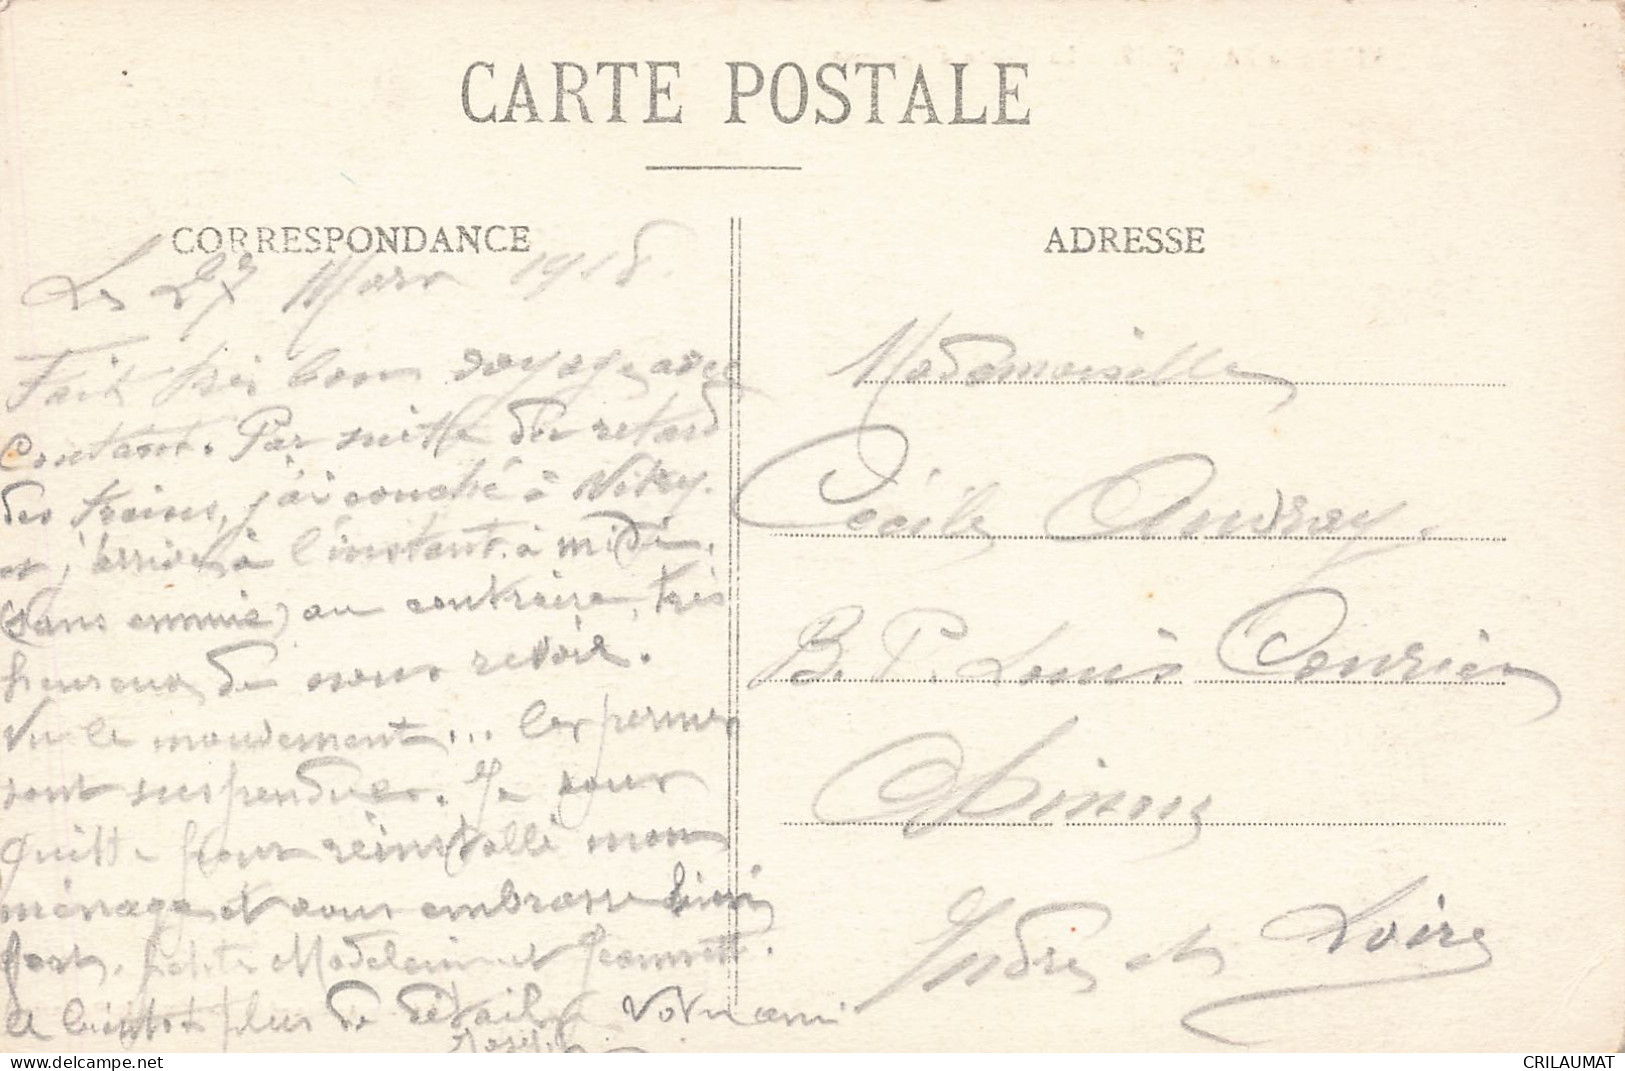 CARTE POSTALE
CORRESPONDANCE
Le 27 Mars 1918.
Fait très bon voyage avec
Constant. Par suitte du retard
des trains, j'ai couché à Vitry.
et j'arrive à l'instant à midi,
(sans ennuie) au contraire, très
heureux de nous revoir.
Vu le mouvement... les permes
sont suspendues. Je vous
quitte pour réinstallé mon
ménage et vous embrasse bien
fort, petite Madeleine et Jeannette.
A bientot plus de détails Votre ami
Joseph
ADRESSE
Mademoiselle
Cécile Audray.
B. P. Louis Courier
Chinon
Indre et Loire
CRILAUMAT